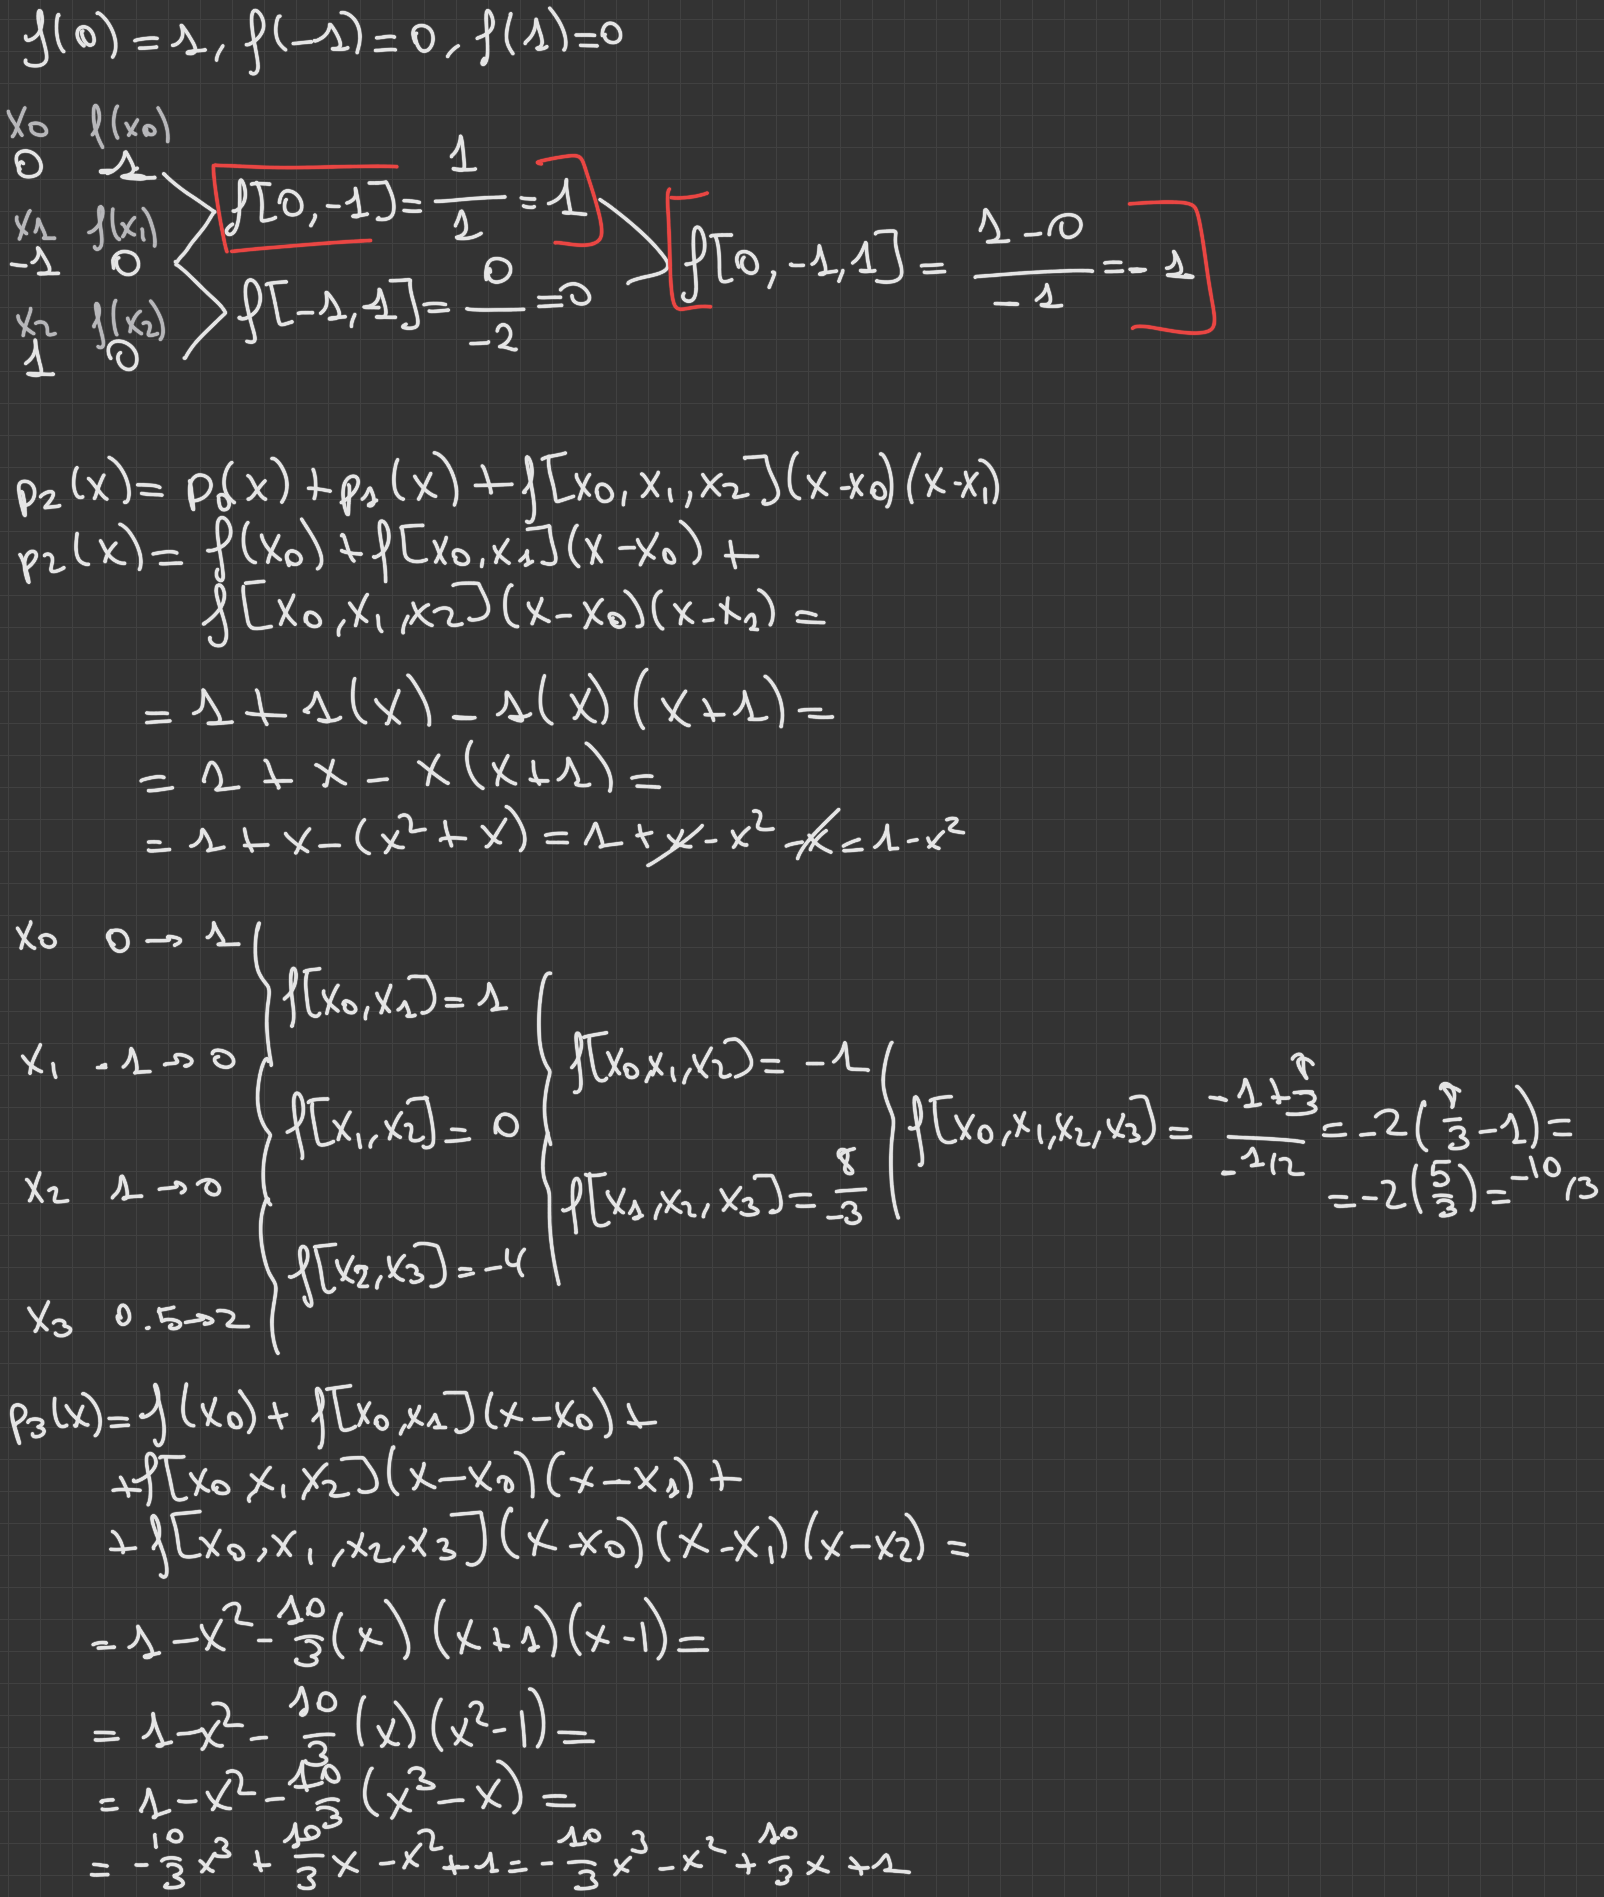 f(0) = 1, f(-1) = 0, f(1) = 0
x0 f(x0)
0 1
f[0,-1] = 1/1 = 1
x1 f(x1)
-1 0
f[0,-1,1] = (1-0)/-1 = -1
f[-1,1] = 0/-2 = 0
x2 f(x2)
1 0
p2(x) = p0(x) + p1(x) + f[x0,x1,x2](x-x0)(x-x1)
p2(x) = f(x0) + f[x0,x1](x-x0) +
f[x0,x1,x2](x-x0)(x-x1) =
= 1 + 1(x) - 1(x)(x+1) =
= 1 + x - x(x+1) =
= 1 + x - (x² + x) = 1 + x - x² - x = 1 - x²
x0 0 → 1
f[x0,x1] = 1
x1 -1 → 0
f[x0,x1,x2] = -1
f[x1,x2] = 0
f[x0,x1,x2,x3] = (-1+8/3)/(-1/2) = -2(8/3 - 1) =
= -2(5/3) = -10/3
x2 1 → 0
f[x1,x2,x3] = 8/-3
f[x2,x3] = -4
x3 0.5 → 2
p3(x) = f(x0) + f[x0,x1](x-x0) +
+ f[x0 x1 x2](x-x0)(x-x1) +
+ f[x0,x1,x2,x3](x-x0)(x-x1)(x-x2) =
= 1 - x² - 10/3(x)(x+1)(x-1) =
= 1 - x² - 10/3(x)(x²-1) =
= 1 - x² - 10/3(x³ - x) =
= -10/3 x³ + 10/3 x - x² + 1 = -10/3 x³ - x² + 10/3 x + 1